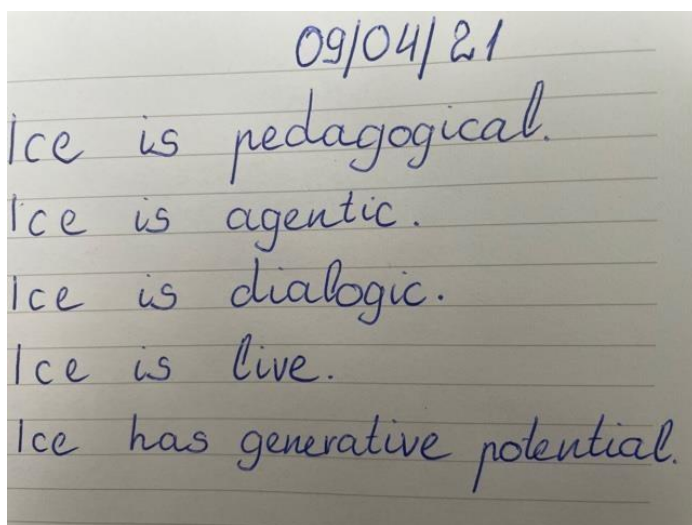 09/04/21
Ice is pedagogical.
Ice is agentic.
Ice is dialogic.
Ice is live.
Ice has generative potential.